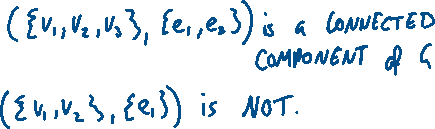 ({v₁,v₂,v₃}, {e₁,e₂}) is a CONNECTED
COMPONENT of G
({v₁,v₂}, {e₁}) is NOT.